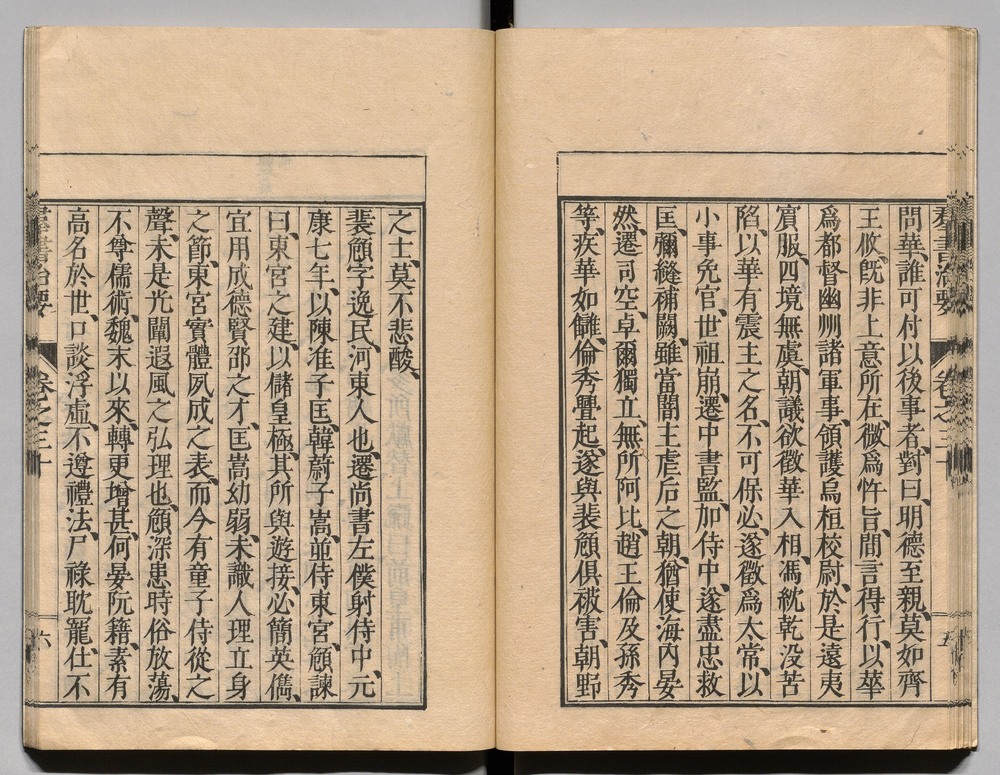 羣書治要 卷之三十 五
問華、誰可付以後事者、對曰、明德至親、莫如齊
王攸、旣非上意所在、微爲忤旨、間言得行、以華
爲都督幽州諸軍事、領護烏桓校尉、於是遠夷
賓服、四境無虞、朝議欲徵華入相、馮紞乾没苦
陷、以華有震主之名、不可保必、遂徵爲太常、以
小事免官、世祖崩、遷中書監、加侍中、遂盡忠救
匡、彌縫補闕、雖當闇主虐后之朝、猶使海内晏
然、遷司空、卓爾獨立、無所阿比、趙王倫及孫秀
等、疾華如讎、倫秀釁起、遂與裴頠俱被害、朝野
之士、莫不悲酸、
裴頠字逸民、河東人也、遷尚書左僕射侍中、元
康七年、以陳准子匡、韓蔚子嵩、並侍東宮、頠諫
曰、東宮之建、以儲皇極、其所與遊接、必簡英儁、
宜用成德賢邵之才、匡嵩幼弱、未識人理立身
之節、東宮實體夙成之表、而今有童子侍從之
聲、未是光闡遐風之弘理也、頠深患時俗放蕩、
不尊儒術、魏末以來、轉更增甚、何晏阮籍、素有
高名於世、口談浮虛、不遵禮法、尸祿耽寵、仕不
羣書治要 卷之三十 六